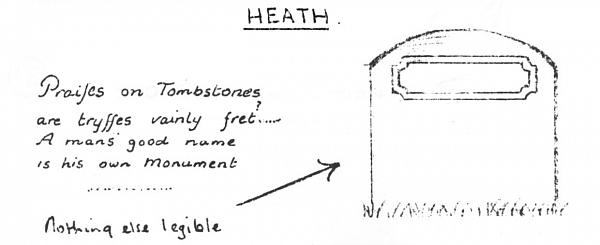 HEATH.
Praiſes on Tombstones
are tryffes vainly fret?.....
A mans good name
is his own Monument
..............
Nothing else legible